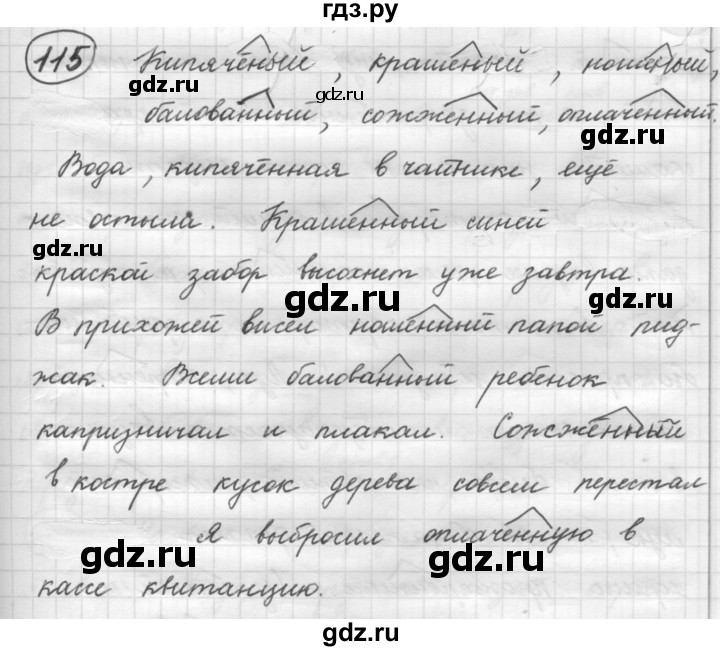 гдз.ру
115 Кипячёный, крашеный, ношеный,
gdz.ru gdz.ru
балованный, сожжённый, оплаченный.
gdz.ru
Вода, кипячённая в чайнике, ещё
не остыла. Крашенный синей
gdz.ru
краской забор высохнет уже завтра.
gdz.ru gdz.ru
В прихожей висел ношенный папой пид-
жак. Всеми балованный ребёнок
капризничал и плакал. Сожжённый
в костре кусок дерева совсем перестал
Я выбросил оплаченную в
gdz.ru gdz.ru
кассе квитанцию.
gdz.ru